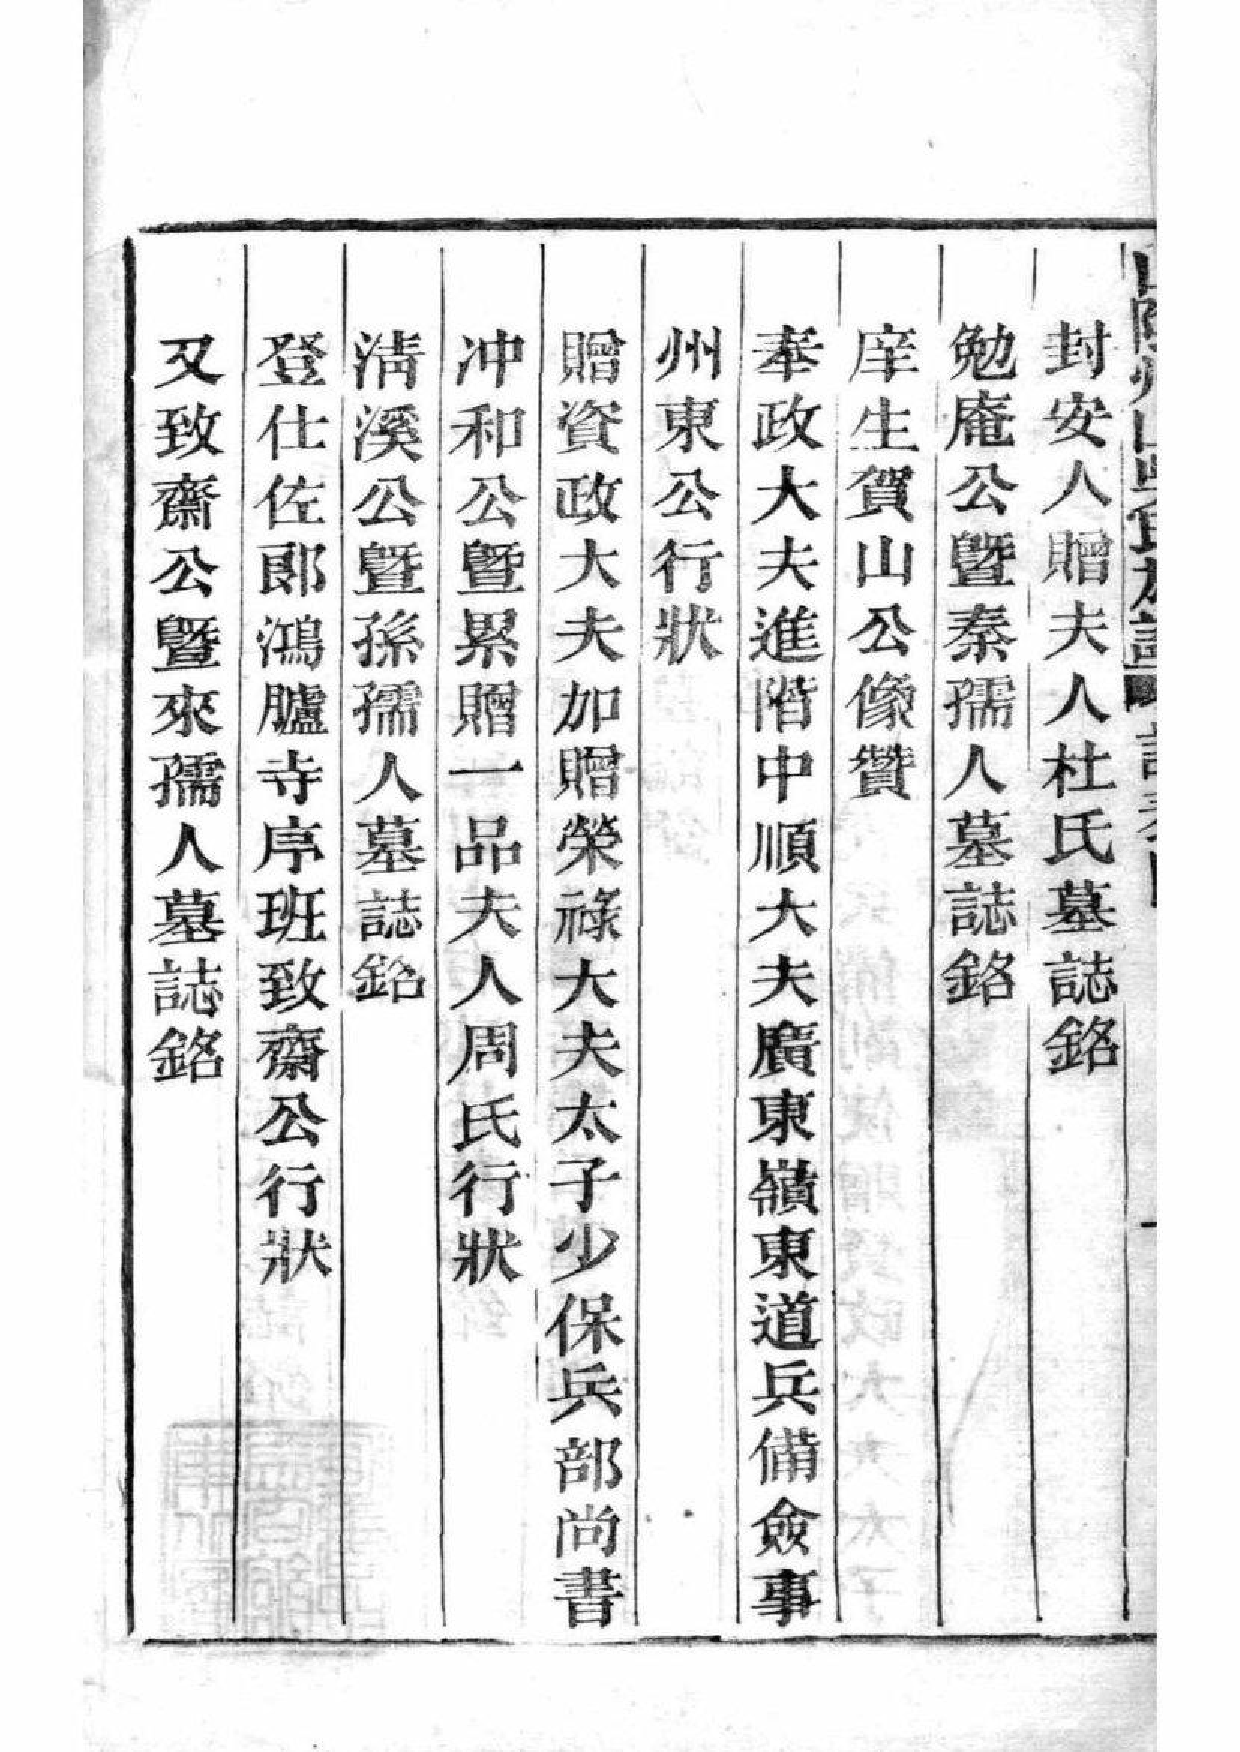 山陰州山吳氏族譜
封安人贈夫人杜氏墓誌銘
勉庵公暨秦孺人墓誌銘
庠生賀山公像贊
奉政大夫進階中順大夫廣東嶺東道兵備僉事
州東公行狀
贈資政大夫加贈榮祿大夫太子少保兵部尚書
冲和公暨累贈一品夫人周氏行狀
淸溪公暨孫孺人墓誌銘
登仕佐郎鴻臚寺序班致齋公行狀
又致齋公暨來孺人墓誌銘